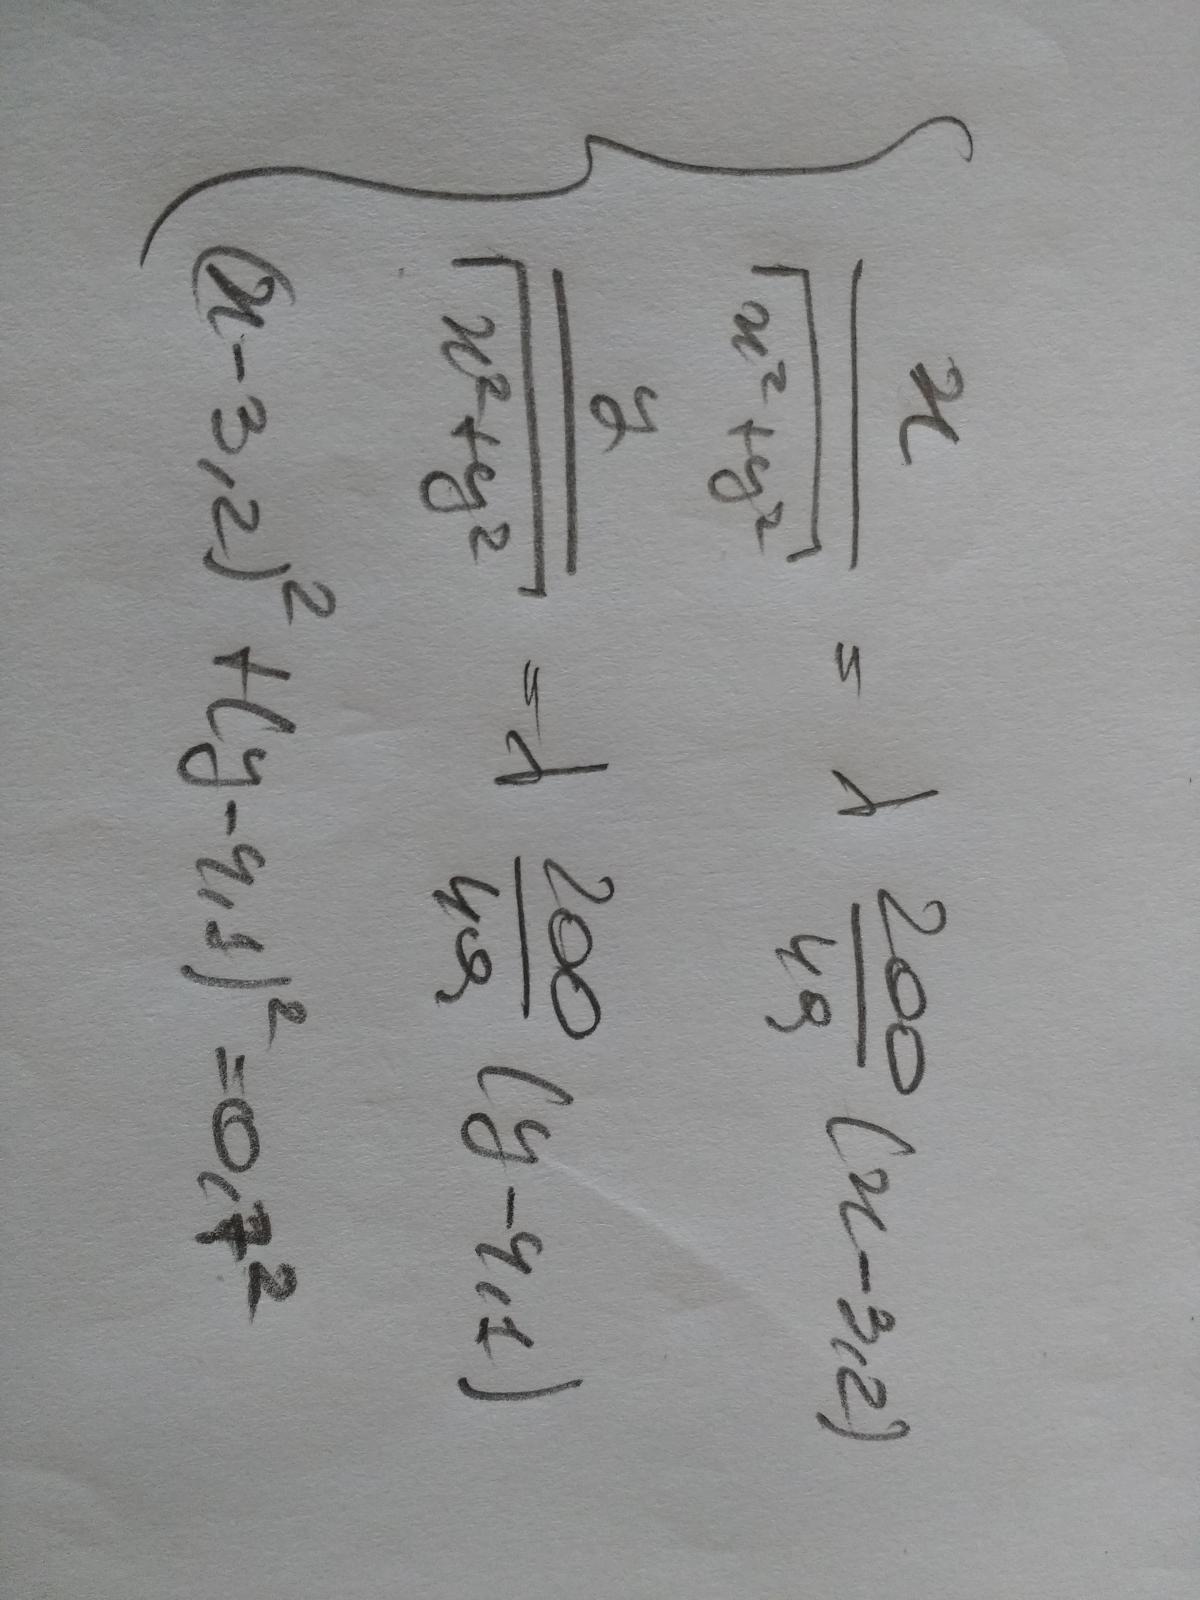 x/√(x²+y²) = λ 200/49 (x-3,2)
y/√(x²+y²) = λ 200/49 (y-4,1)
(x-3,2)²+(y-4,1)²=0,7²